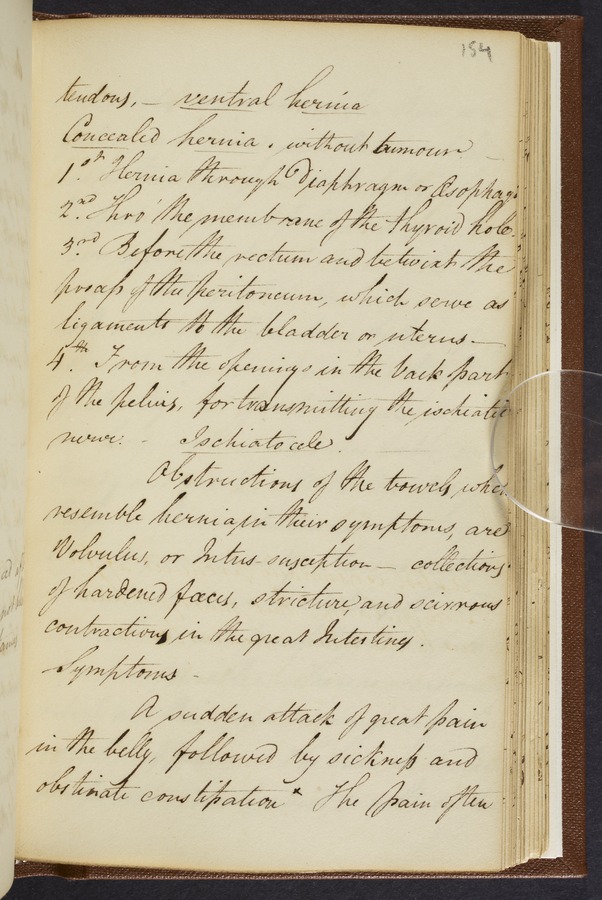 154
tendons, – ventral hernia
Concealed hernia. without tumour –
1.st Hernia through Diaphragm or Œsophag
2.nd Thro' the membrane of the thyroid hole.
3.rd Before the rectum and betwixt the
process of the peritoneum, which serve as
ligaments to the bladder or uterus –
4.th From the openings in the back part
of the pelvis, for transmitting the ischiatic
nerve. – Ischiatocele.
Obstructions of the bowels which
resemble hernia, in their symptoms, are
Volvulus, or Intus-susception – collections
of hardened fæces, stricture, and scirrous
contractions in the great Intestines.
Symptoms –
A sudden attack of great pain
in the belly, followed by sickness and
obstinate constipation x The pain often